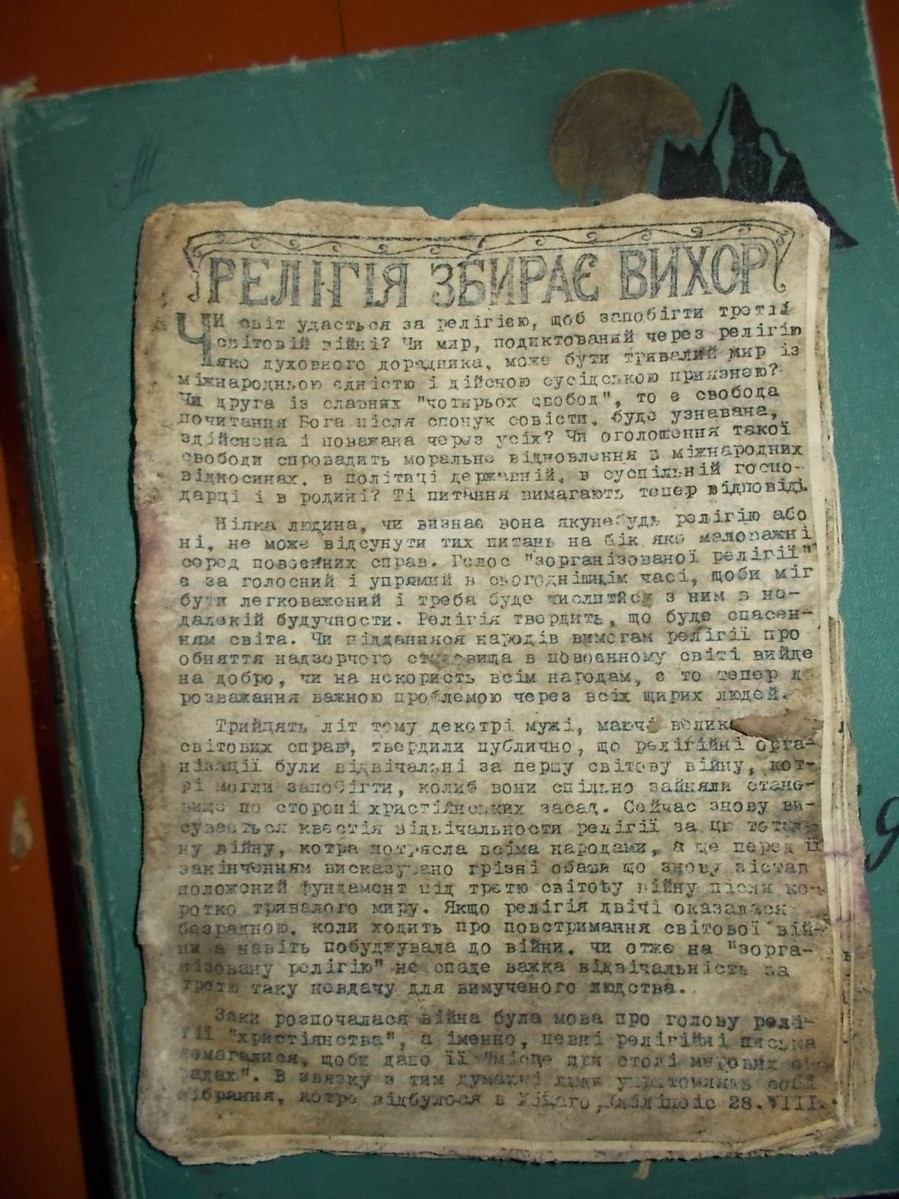 РЕЛІГІЯ ЗБИРАЄ ВИХОР
ЧИ світ удасться за релігією, щоб запобігти третій
світовій війні? Чи мир, подиктований через релігію
яко духовного дорадника, може бути тривалий мир із
міжнародньою єдністю і дійсною сусідською приязнею?
Чи друга із славних "чотирьох свобод", то є свобода
почитання Бога після спонук совісти, буде узнавана,
здійснена і поважана через усіх? Чи оголошення такої
свободи спровадить моральне відновлення в міжнародних
відносинах, в політиці державній, в суспільній госпо-
дарці і в родині? Ті питання вимагають тепер відповіді.
Ніяка людина, чи визнає вона якунебудь релігію або
ні, не може відсунути тих питань на бік яко маловажні
серед повоєнних справ. Голос "зорганізованої релігії"
є за голосний і упрямий в сьогоднішнім часі, щоби міг
бути легковажений і треба буде числитись з ним в не-
далекій будучности. Релігія твердить, що буде спасен-
ням світа. Чи піддання народів вимогам релігії про
обняття надзорчого становища в повоєнному світі вийде
на добро, чи на некористь всім народам, є то тепер до
розважання важною проблемою через всіх щирих людей.
Трийцять літ тому декотрі мужі, маючі велике
світових справ, твердили публично, що релігійні орга-
нізації були відвічальні за першу світову війну, кот-
рі могли запобігти, колиб вони спільно зайняли стано-
вище по стороні християнських засад. Сейчас знову ви-
сувається квестія відвічальности релігії за цю тоталь-
ну війну, котра потрясла всіма народами, а ще перед її
закінченням висказувано грізні обави що знову зістав
положений фундамент під третю світову війну після ко-
ротко тривалого миру. Якщо релігія двічі оказалася
безрадною, коли ходить про повстримання світової вій-
ни а навіть побуджувала до війни, чи отже на "зорга-
нізовану релігію" не спаде важка відвічальність за
третю таку невдачу для вимученого людства..
Заки розпочалася війна була мова про голову релі-
гії "християнства", а іменно, певні релігійні письма
домагалися, щоби дано її "місце при столі мирових
В звязку з тим думаючі люди
зібрання, котре відбулося в 28.VIII.